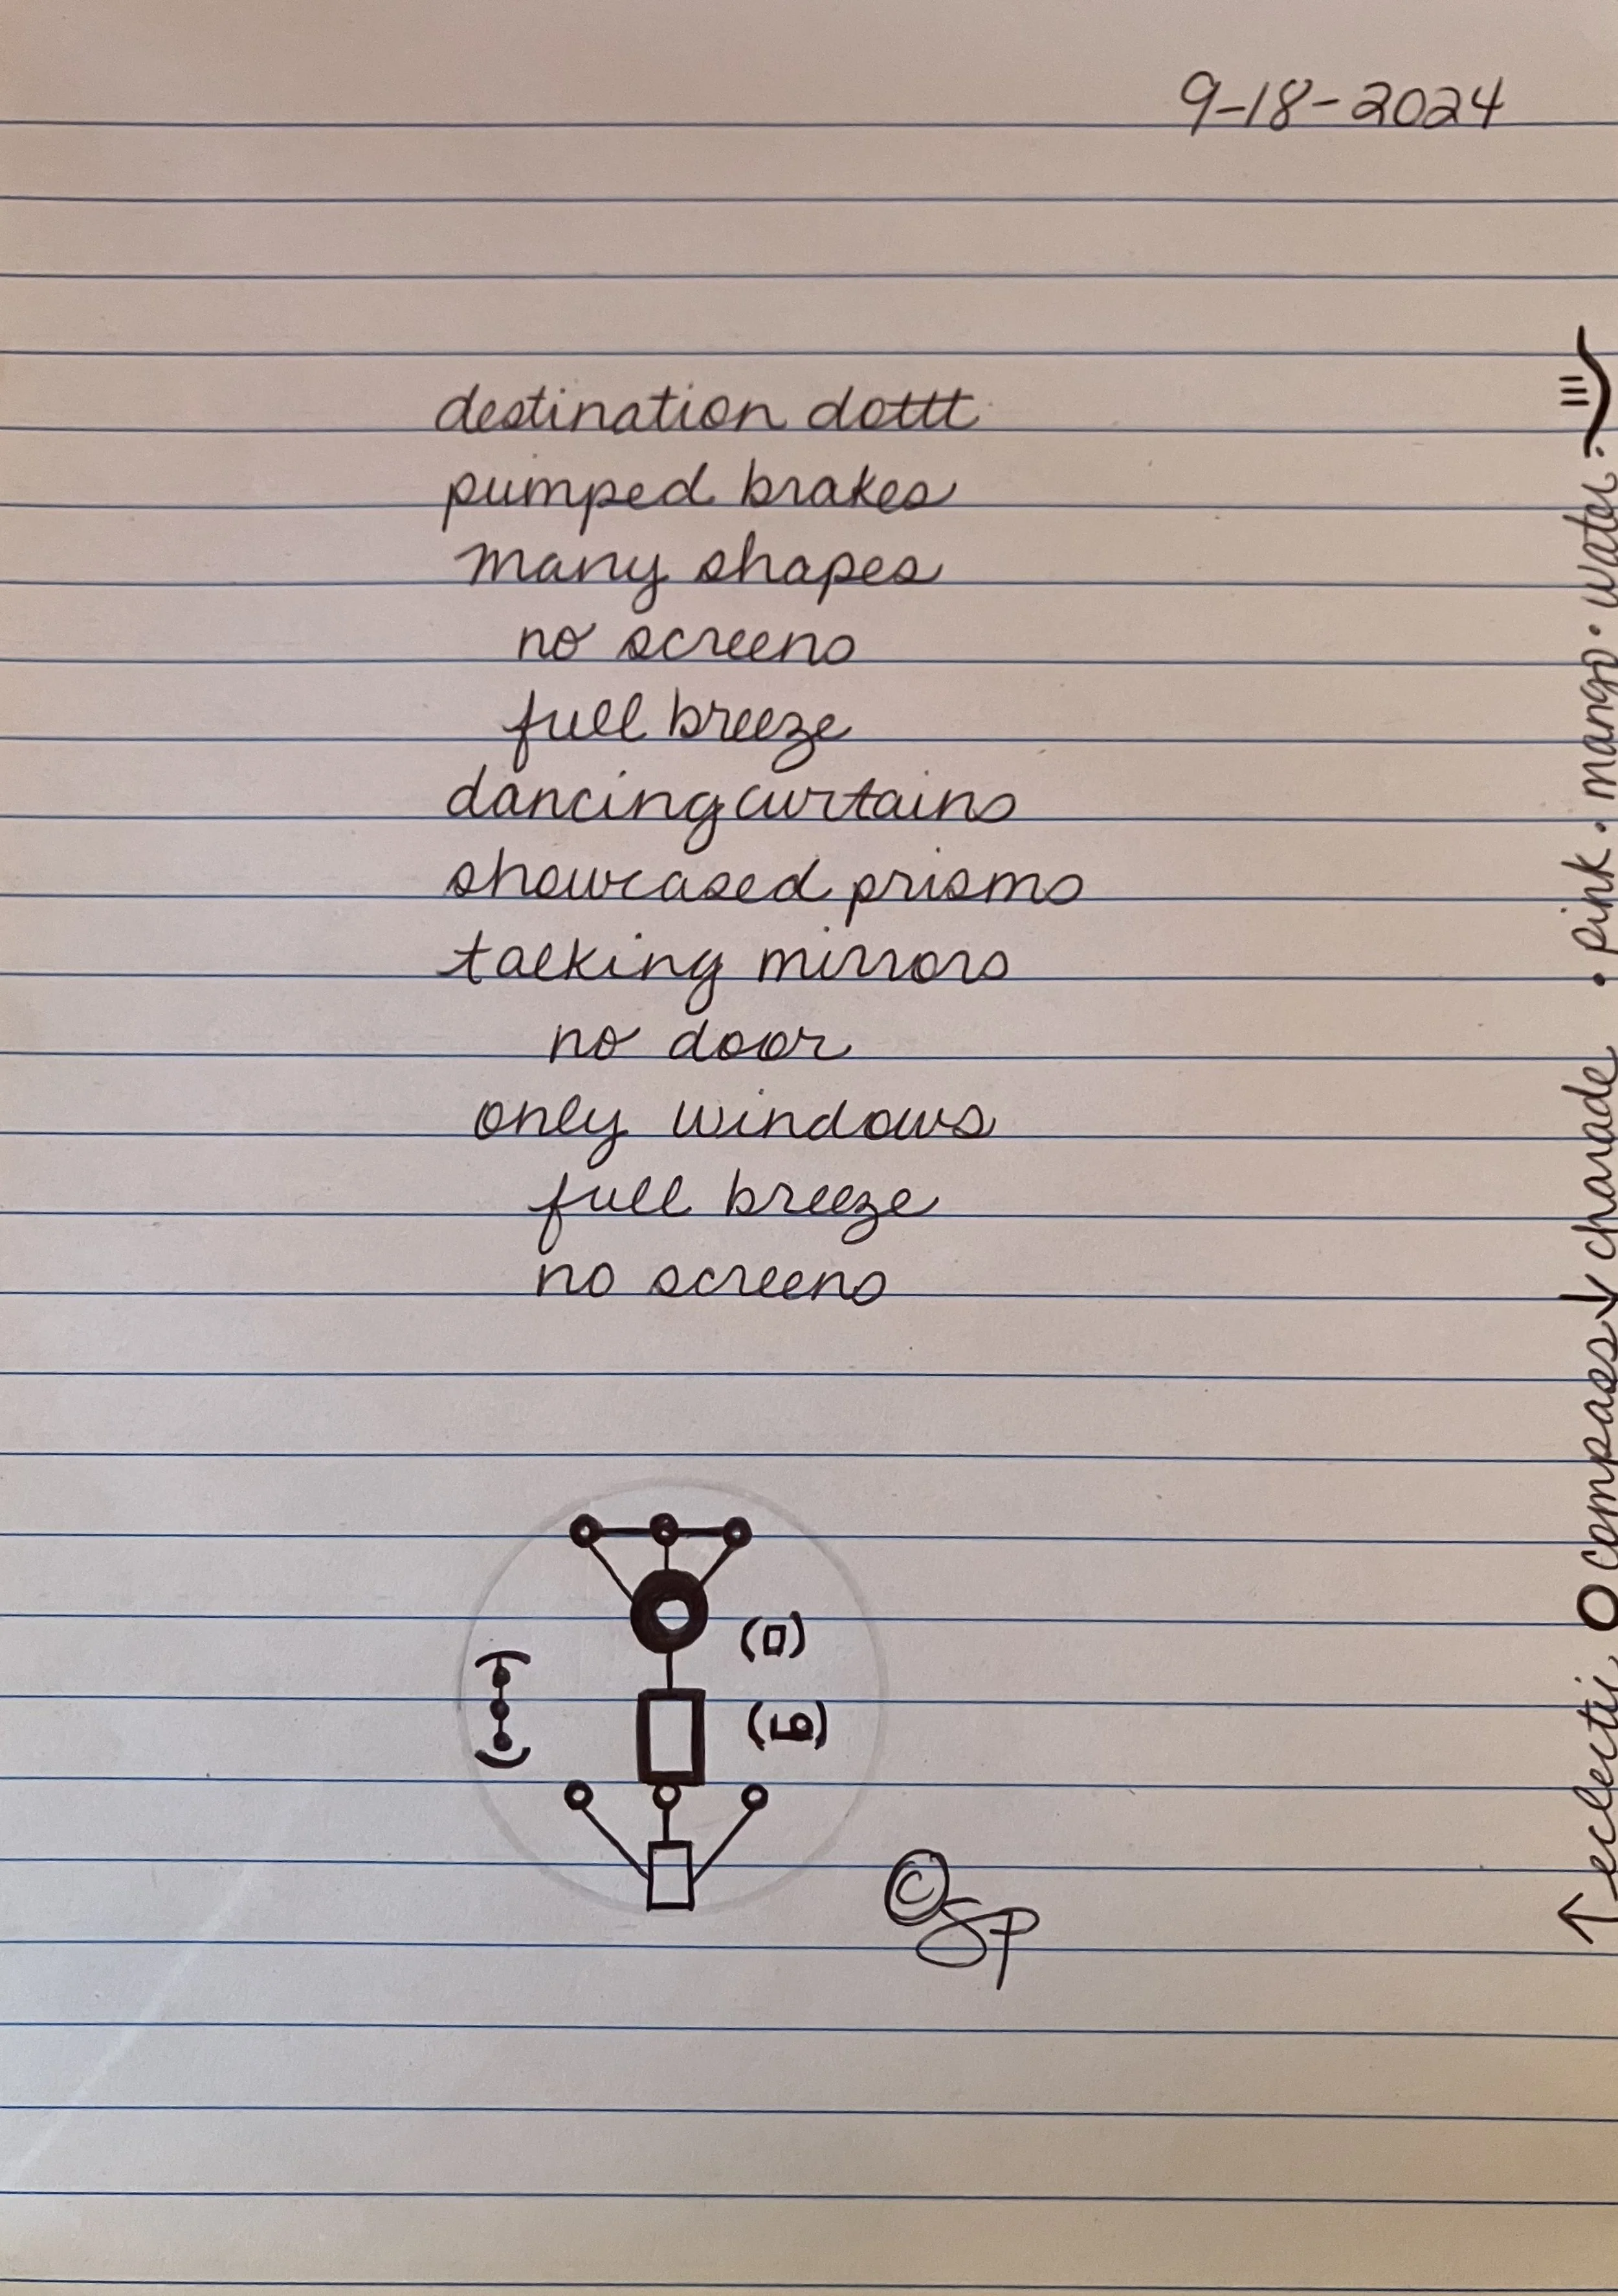 9-18-2024
destination dottt
pumped brakes
many shapes
no screens
full breeze
dancing curtains
showcased prisms
talking mirrors
no door
only windows
full breeze
no screens
(a)
(b)
© SP
↑ eclectic O compass ↓ charade • pink • mango • water •